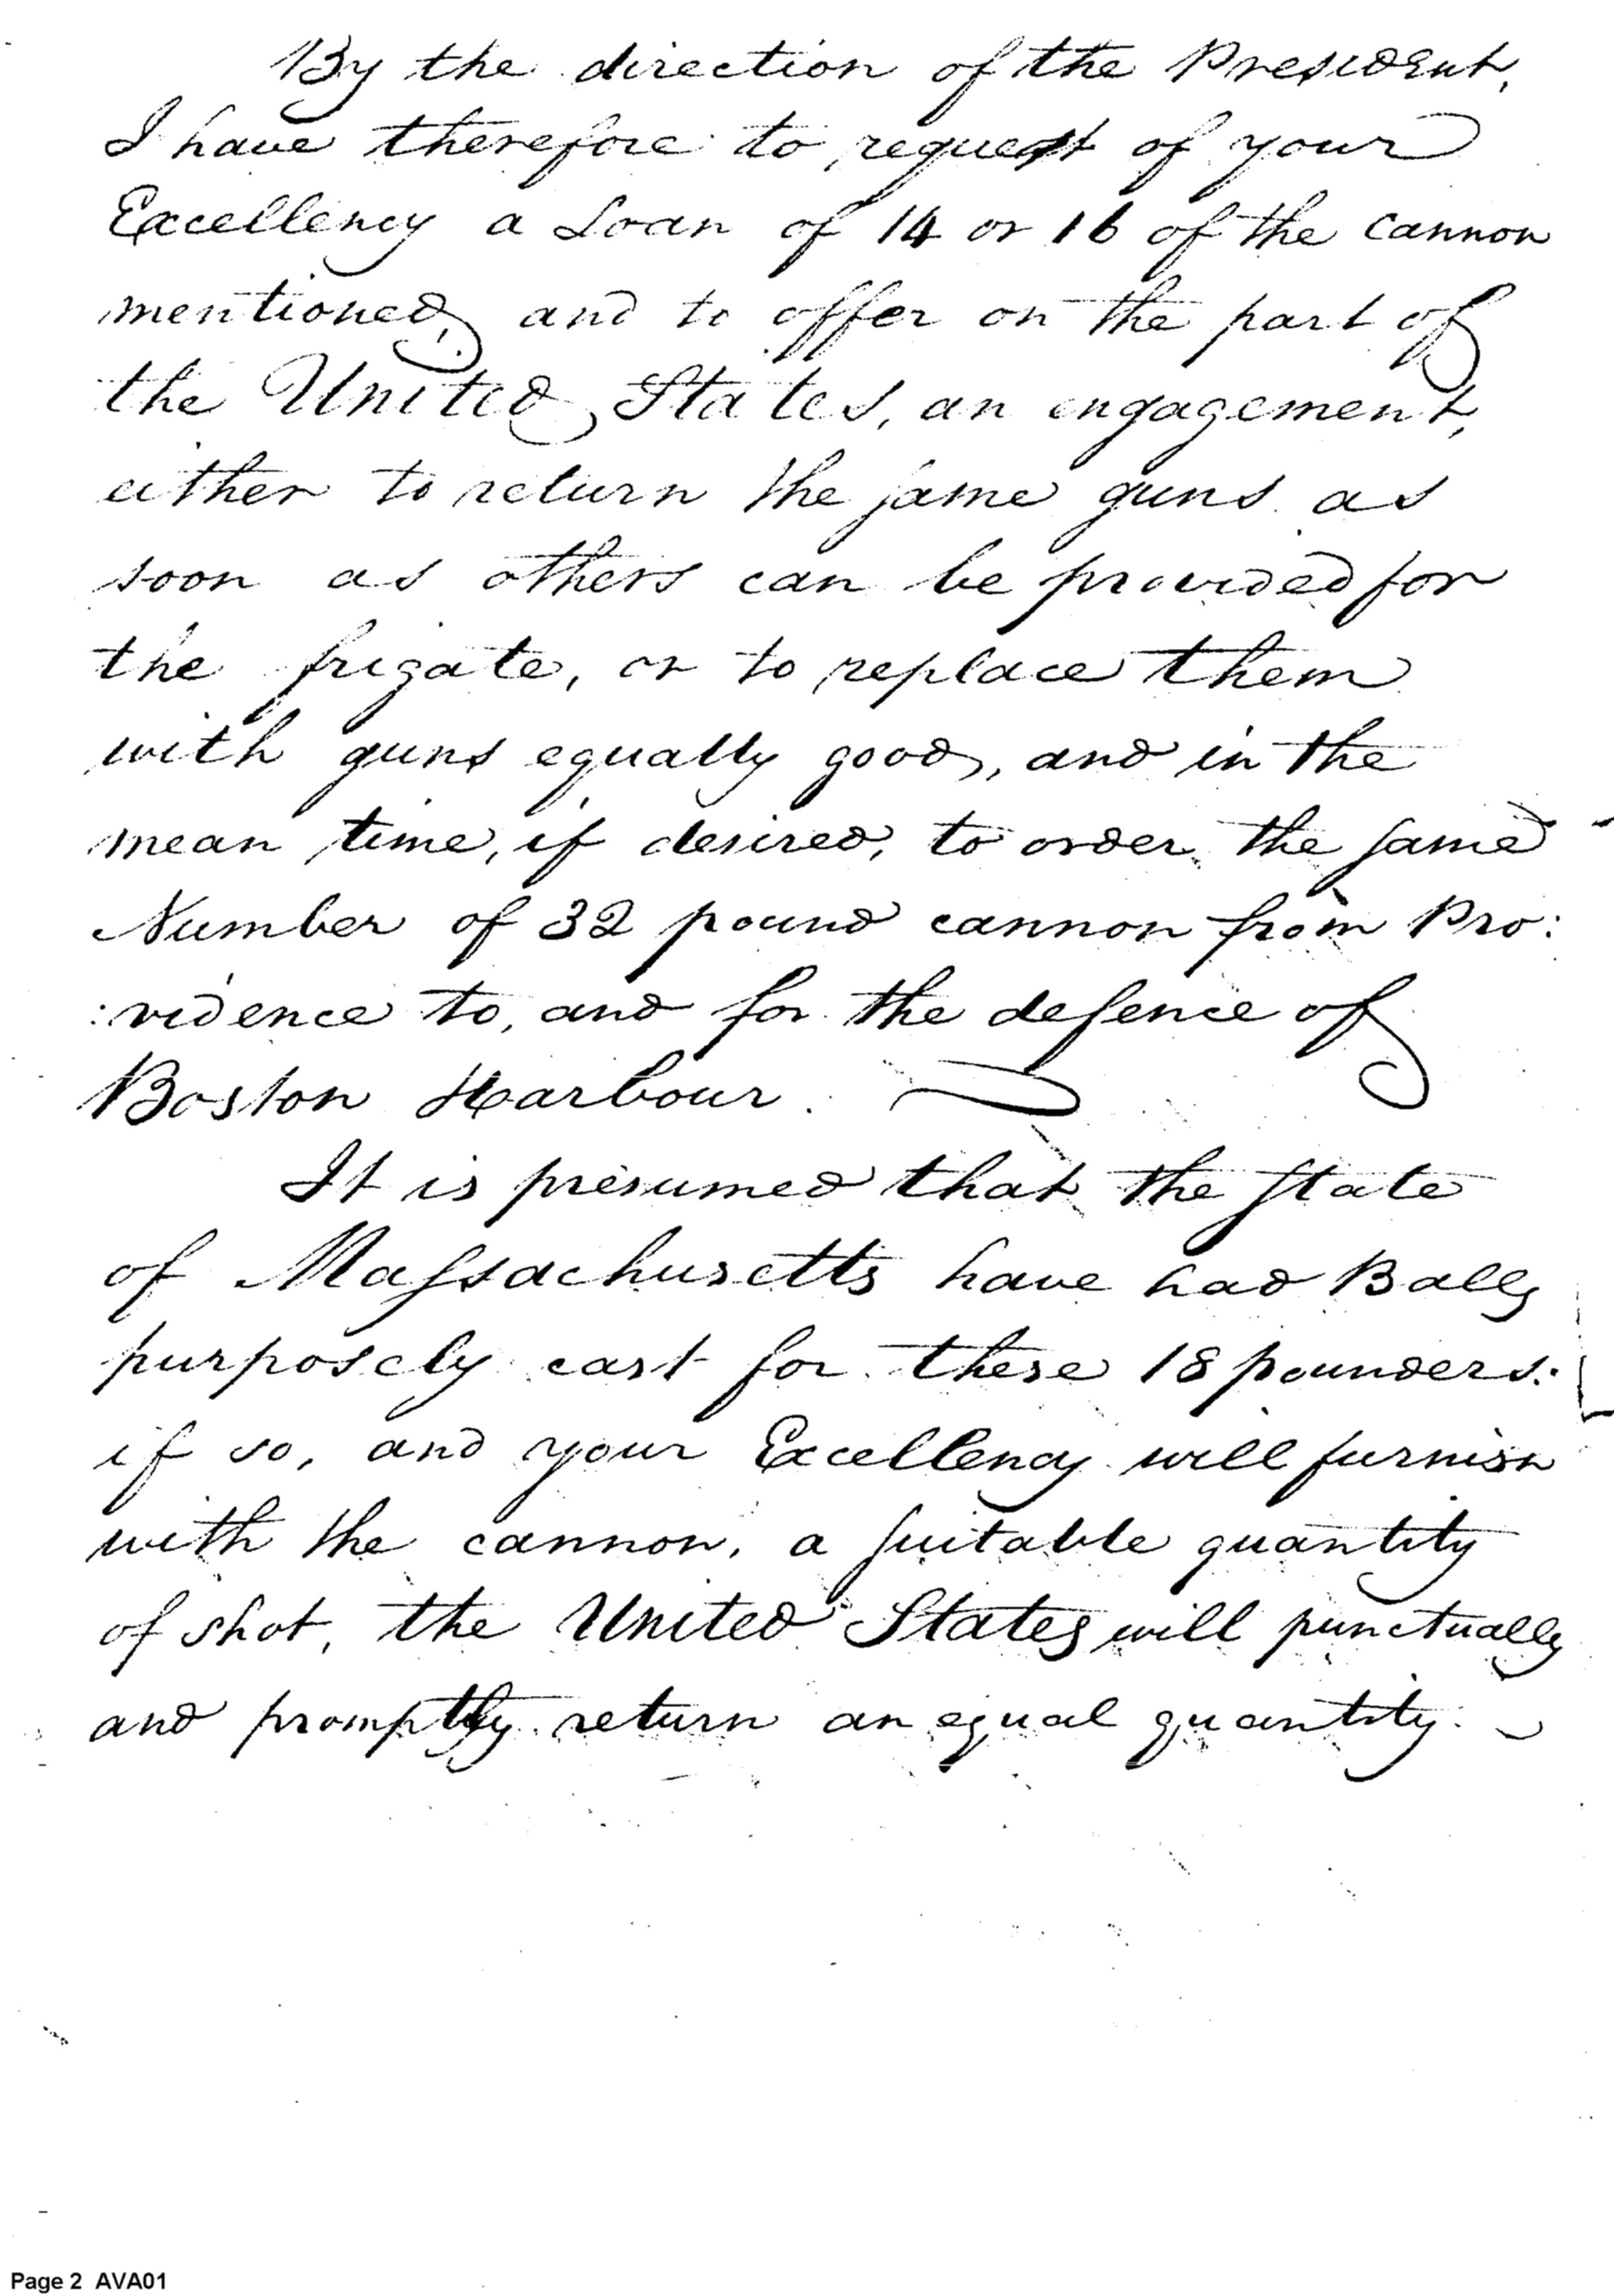 By the direction of the President,
I have therefore to request of your
Excellency a Loan of 14 or 16 of the cannon
mentioned, and to offer on the part of
the United States, an engagement,
either to return the same guns as
soon as others can be provided for
the frigate, or to replace them
with guns equally good, and in the
mean time, if desired, to order the same
Number of 32 pound cannon from Pro:
:vidence to, and for the defence of
Boston Harbour.
It is presumed that the State
of Massachusetts have had Balls
purposely cast for these 18 pounders:
if so, and your Excellency will furnish
with the cannon, a suitable quantity
of shot, the United States will punctually
and promptly return an equal quantity.
Page 2 AVA01